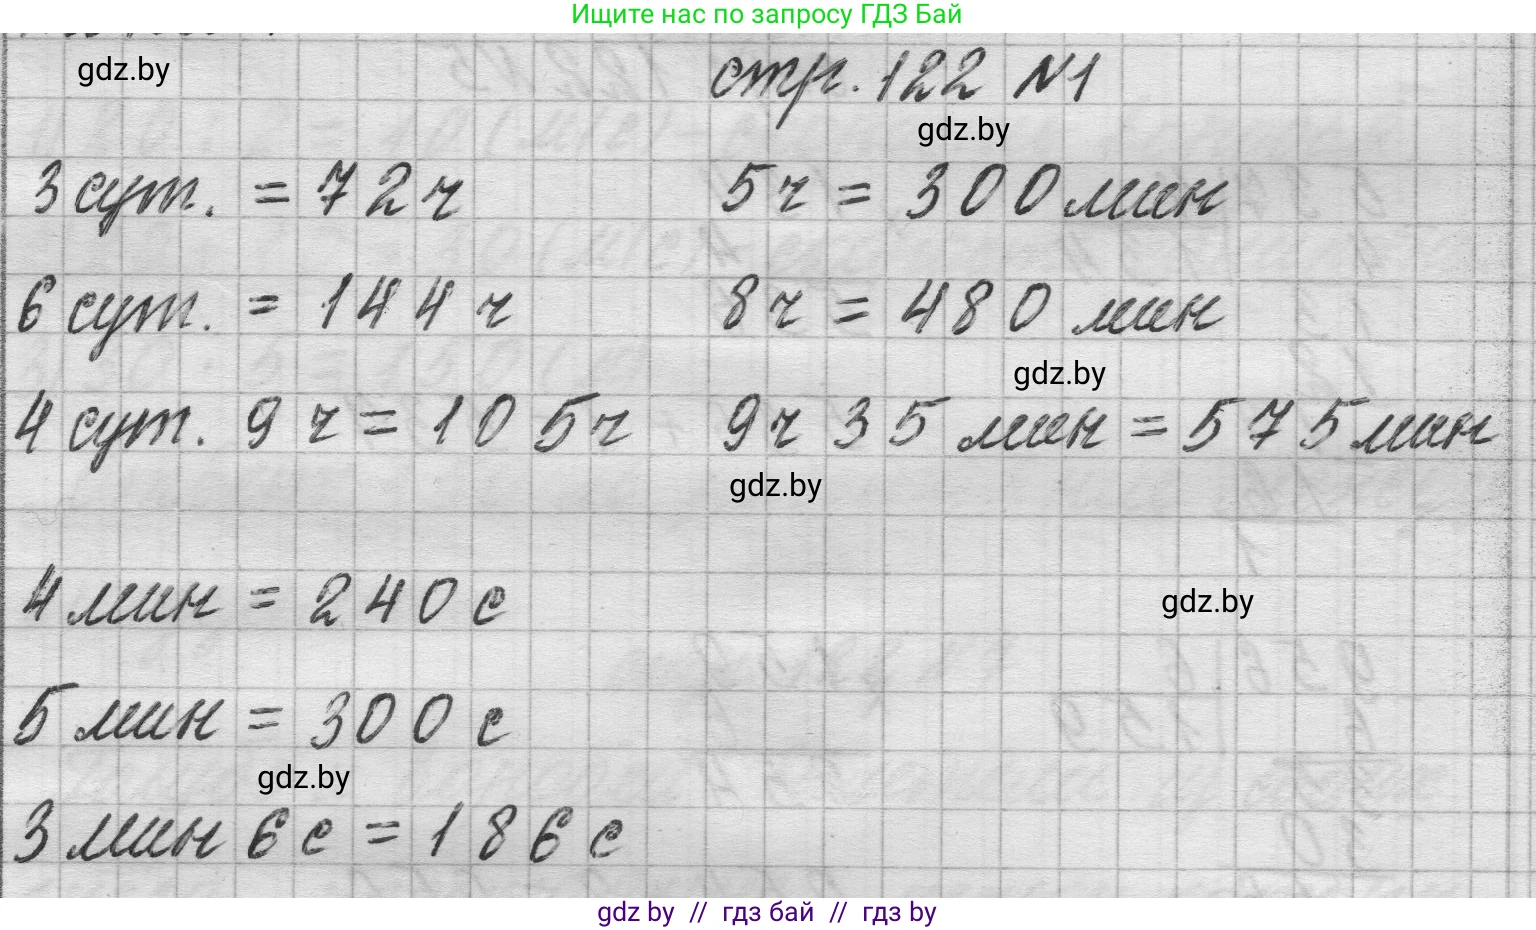 Ищите нас по запросу ГДЗ Бай
gdz.by
стр. 122 №1
gdz.by
3 сут. = 72 ч
5ч = 300 мин
6 сут. = 144 ч
8ч = 480 мин
gdz.by
4 сут. 9 ч = 105ч
9ч 35 мин = 575 мин
gdz.by
4 мин = 240 с
gdz.by
5 мин = 300 с
gdz.by
3 мин 6 с = 186 с
gdz by // гдз бай // гдз by